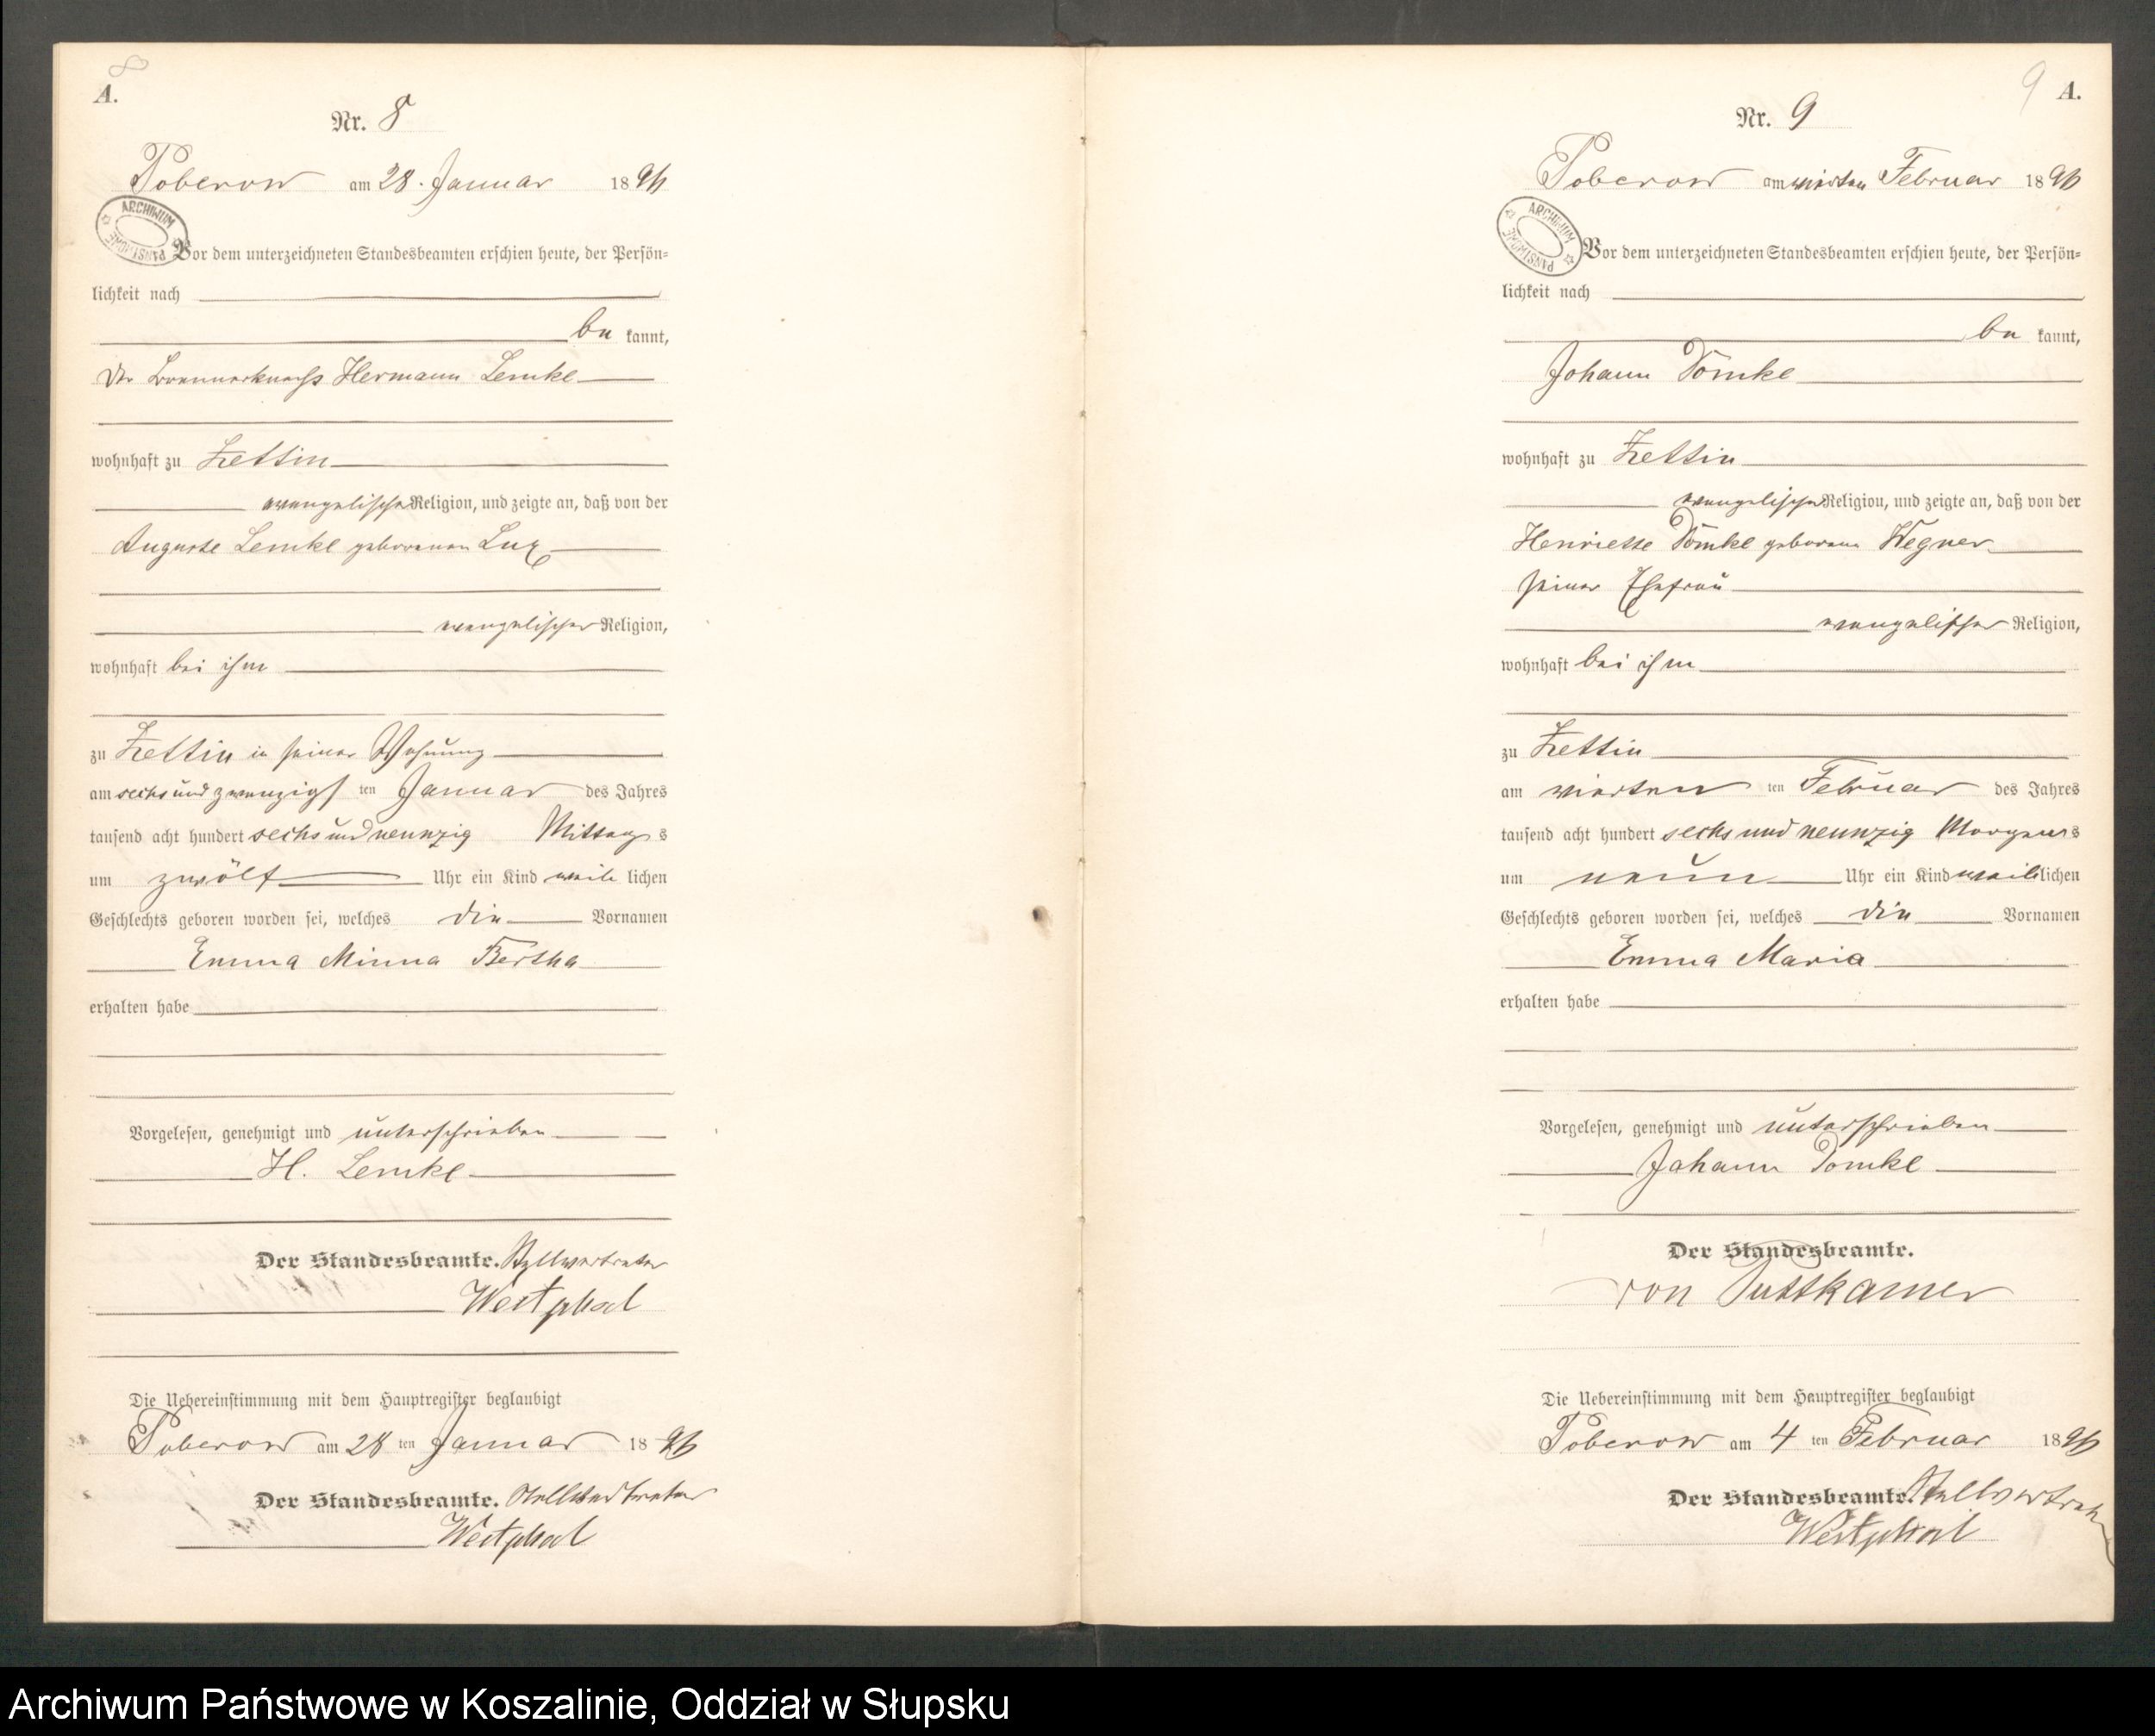 8
A.
Nr. 8
Poberow am 28. Januar 1896
ARCHIWUM PAŃSTWOWE
Vor dem unterzeichneten Standesbeamten erschien heute, der Persön=
lichkeit nach
be kannt,
Der Hermann Lemke
wohnhaft zu Zettin
evangelischer Religion, und zeigte an, daß von der
Auguste Lemke geborenen Lux
evangelischer Religion,
wohnhaft bei ihm
zu Zettin in seiner Wohnung
am sechsundzwanzigsten Januar des Jahres
tausend acht hundert sechs und neunzig Mittags
um zwölf Uhr ein Kind weiblichen
Geschlechts geboren worden sei, welches die Vornamen
Emma Minna Bertha
erhalten habe
Vorgelesen, genehmigt und unterschrieben
H. Lemke
Der Standesbeamte. Stellvertreter
Westphal
Die Uebereinstimmung mit dem Hauptregister beglaubigt
Poberow am 28 ten Januar 1896
Der Standesbeamte. Stellvertreter
Westphal
9 A.
Nr. 9
Poberow am vierten Februar 1896
ARCHIWUM PAŃSTWOWE
Vor dem unterzeichneten Standesbeamten erschien heute, der Persön=
lichkeit nach
be kannt,
Johann Dömke
wohnhaft zu Zettin
evangelischer Religion, und zeigte an, daß von der
Henriette Dömke geborene Wegner
seiner Ehefrau
evangelischer Religion,
wohnhaft bei ihm
zu Zettin
am vierten ten Februar des Jahres
tausend acht hundert sechs und neunzig Morgens
um neun Uhr ein Kind weiblichen
Geschlechts geboren worden sei, welches die Vornamen
Emma Maria
erhalten habe
Vorgelesen, genehmigt und unterschrieben
Johann Domke
Der Standesbeamte.
von Puttkamer
Die Uebereinstimmung mit dem Hauptregister beglaubigt
Poberow am 4 ten Februar 1896
Der Standesbeamte. Stellvertreter
Westphal
Archiwum Państwowe w Koszalinie, Oddział w Słupsku